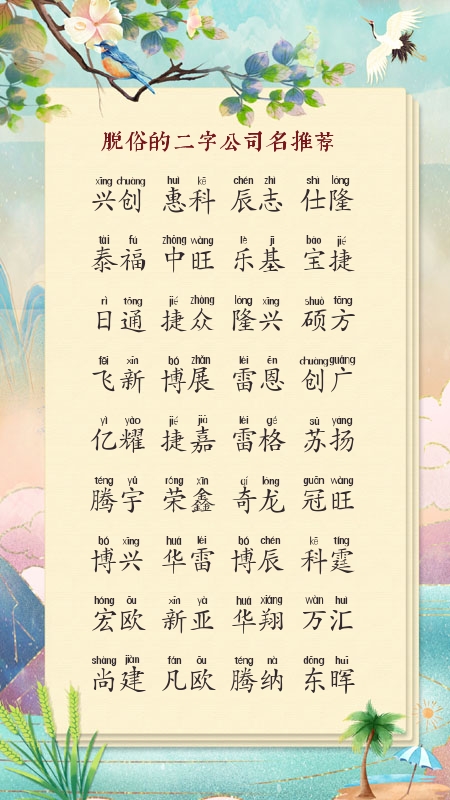 脱俗的二字公司名推荐
xīng chuàng huì kē chén zhì shì lóng
兴创 惠科 辰志 仕隆
tài fú zhōng wàng lè jī bǎo jié
泰福 中旺 乐基 宝捷
rì tōng jié zhòng lóng xīng shuò fāng
日通 捷众 隆兴 硕方
fēi xīn bó zhǎn léi ēn chuàng guǎng
飞新 博展 雷恩 创广
yì yào jié jiā léi gé sū yáng
亿耀 捷嘉 雷格 苏扬
téng yǔ róng xīn qí lóng guān wàng
腾宇 荣鑫 奇龙 冠旺
bó xīng huá léi bó chén kē tíng
博兴 华雷 博辰 科霆
hóng ōu xīn yà huá xiáng wàn huì
宏欧 新亚 华翔 万汇
shàng jiàn fán ōu téng nà dōng huī
尚建 凡欧 腾纳 东晖